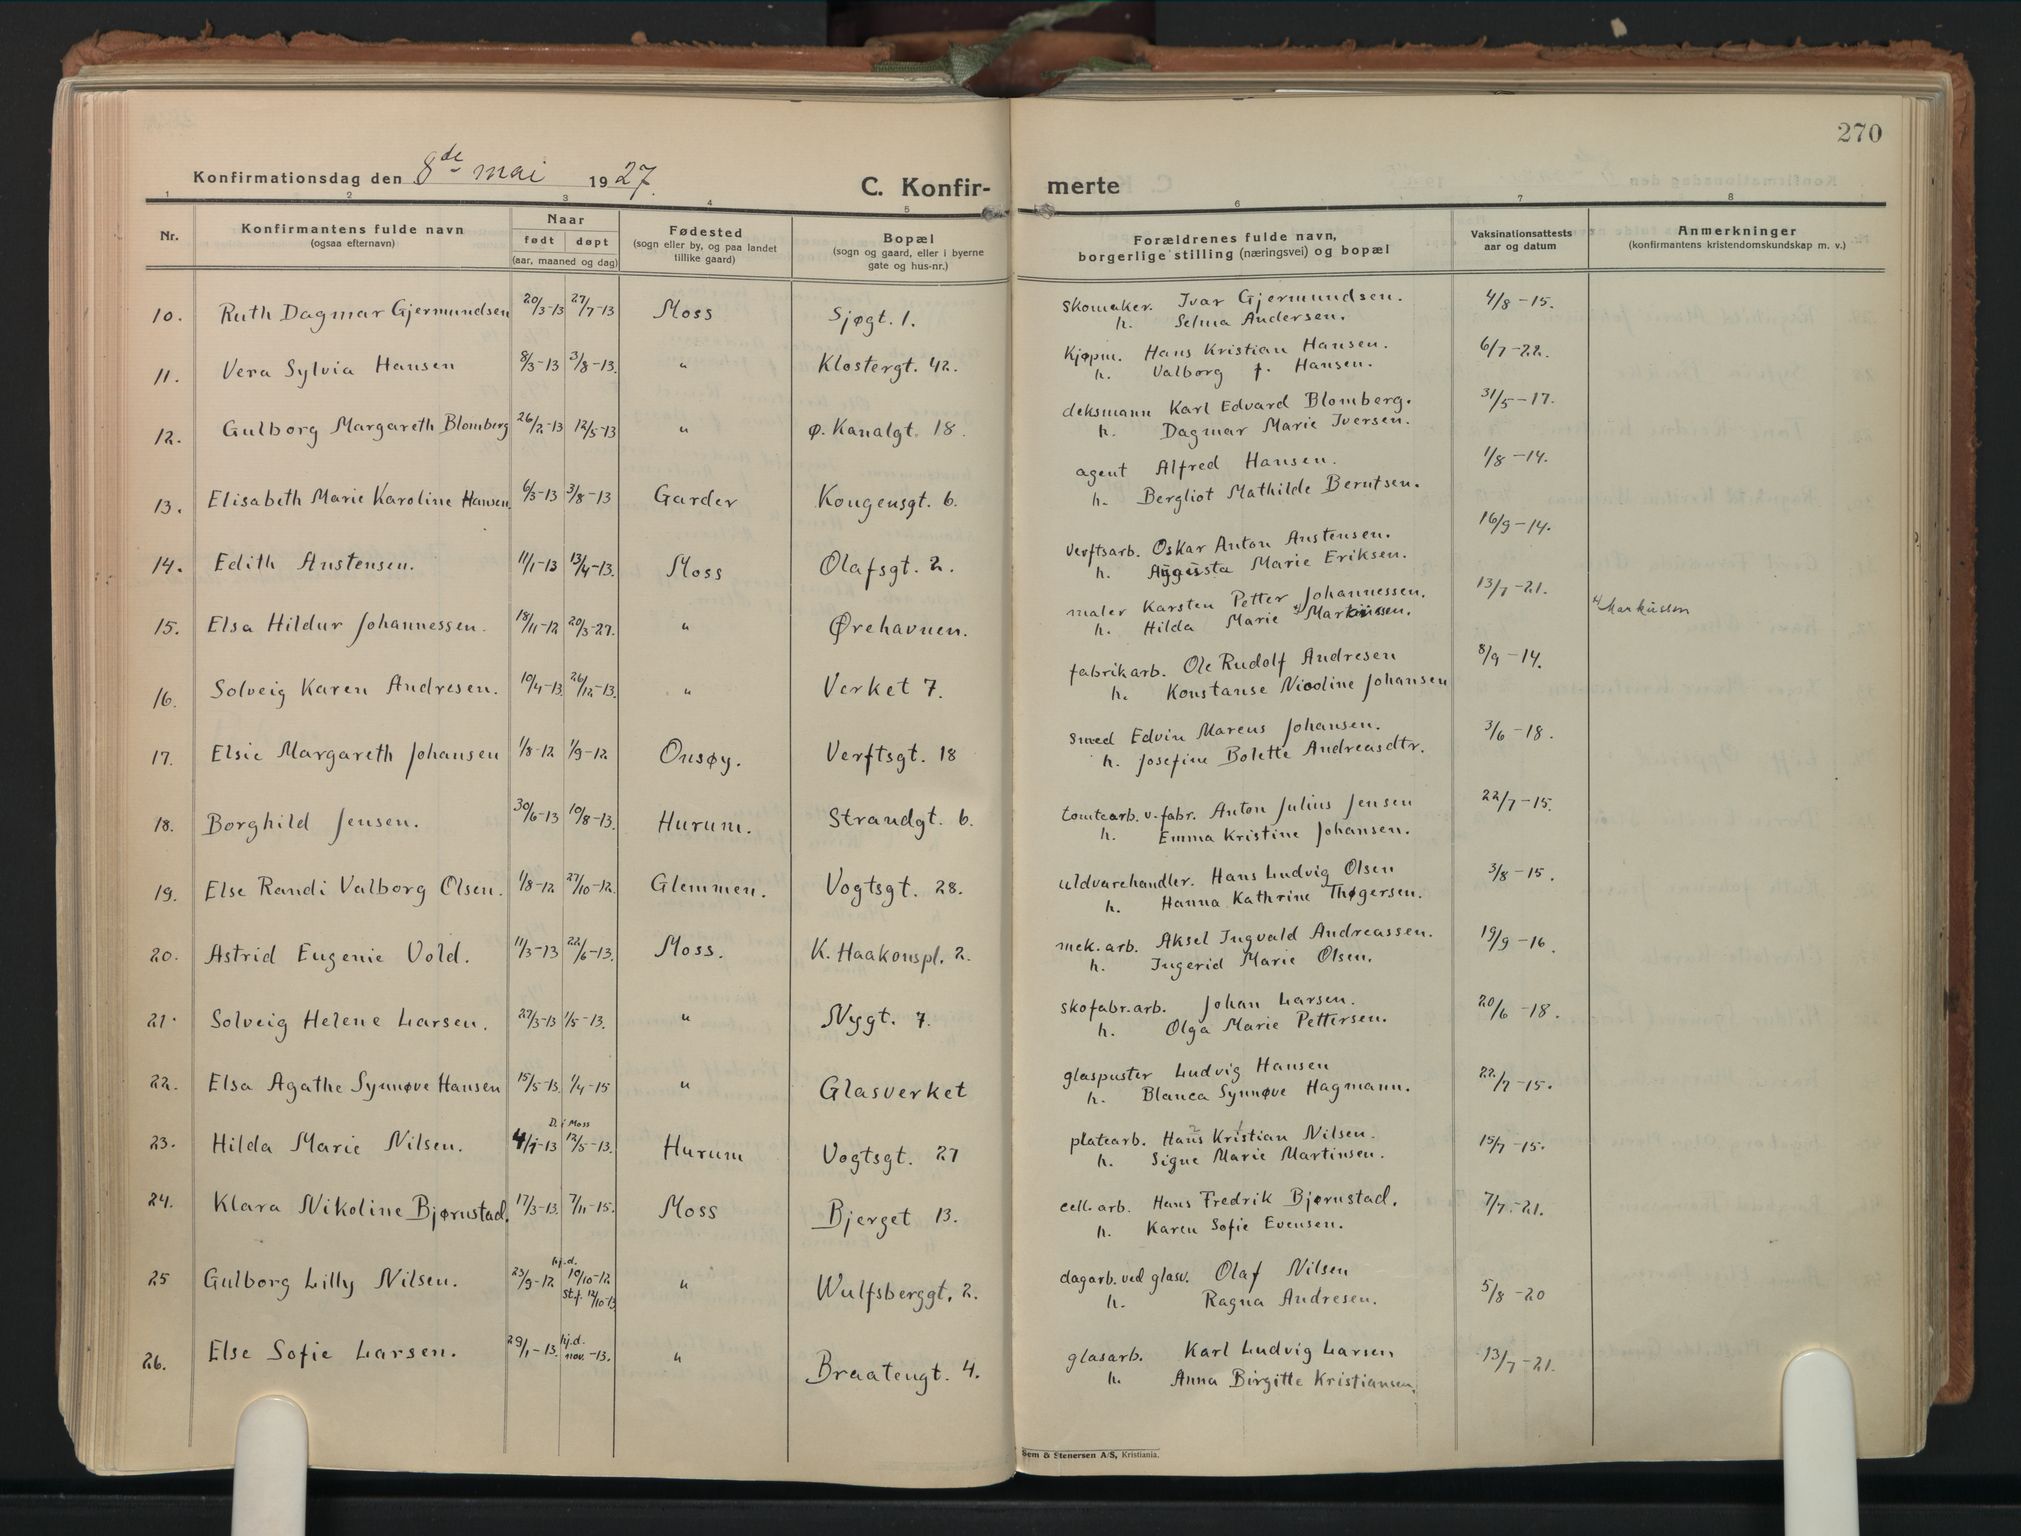 270
Konfirmationsdag den 8de mai 1927.
C. Konfir- merte
1 2 3 4 5 6 7 8
Nr.
Konfirmantens fulde navn
(ogsaa efternavn)
Naar
født døpt
(aar, maaned og dag)
Fødested
(sogn eller by, og paa landet
tillike gaard)
Bopæl
(sogn og gaard, eller i byerne
gate og hus-nr.)
Forældrenes fulde navn,
borgerlige stilling (næringsvei) og bopæl
Vaksinationsattests
aar og datum
Anmerkninger
(konfirmantens kristendomskundskap m. v.)
10. Ruth Dagmar Gjermundsen 20/3-13 27/7-13 Moss Sjøgt. 1. Skomaker. Ivar Gjermundsen. 4/8-15.
h. Selma Andersen.
11. Vera Sylvia Hansen 8/3-13 3/8-13. " Klostergt. 42. Kjøpm. Hans Kristian Hansen. 6/7-22.
h. Valborg f. Hansen.
12. Gulborg Margareth Blomberg 26/2-13 12/5-13 " Ø. Kanalgt. 18. deksmann Karl Edvard Blomberg. 31/5-17.
h. Dagmar Marie Iversen.
13. Elisabeth Marie Karoline Hansen. 6/3-13 3/8-13 Garder Kongensgt. 6. agent Alfred Hansen. 1/8-14.
h. Bergliot Mathilde Berntsen.
14. Edith Anstensen. 11/1-13 13/4-13. Moss Olafsgt. 2. Verftsarb. Oskar Anton Anstensen. 16/9-14.
h. Augusta Marie Eriksen.
15. Elsa Hildur Johannessen. 18/11-12 20/3-27. " Ørehavnen. maler Karsten Petter Johannessen. 13/7-21.
h. Hilda Marie Markussen. Markussen
16. Solveig Karen Andresen. 10/4-13 26/12-13. " Verket 7. fabrikarb. Ole Rudolf Andresen 8/9-14.
h. Konstanse Nicoline Johansen
17. Elsie Margareth Johansen 1/8-12 1/9-12 Onsøy. Verftsgt. 18 Smed Edvin Marcus Johansen. 3/6-18.
h. Josefine Bolette Andreasdtr.
18. Borghild Jensen. 30/6-13 10/8-13. Hurum. Strandgt. 6. tomtearb. v. fabr. Anton Julius Jensen 22/7-15.
h. Emma Kristine Johansen.
19. Else Randi Valborg Olsen. 1/8-12 27/10-12. Glemmen. Vogtsgt. 28. uldvarehandler. Hans Ludvig Olsen 3/8-15.
h. Hanna Kathrine Thøgersen.
20. Astrid Eugenie Vold. 11/3-13 22/6-13. Moss. K. Haakonspl. 2. mek. arb. Aksel Ingvald Andreassen. 19/9-16.
h. Ingerid Marie Olsen.
21. Solveig Helene Larsen. 27/3-13 1/5-13. " Nygt. 7. skofabr. arb. Johan Larsen. 20/6-18.
h. Olga Marie Pettersen.
22. Elsa Agathe Synnøve Hansen 15/5-13. 1/4-15 " Glasverket glaspuster Ludvig Hansen 22/7-15.
h. Blanca Synnøve Hagmann.
D. i Moss
23. Hilda Marie Nilsen. 4/1-13 12/5-13. Hurum Vogtsgt. 27 platearb. Hans Kristian Nilsen. 15/7-15.
h. Signe Marie Martinsen.
24. Klara Nikoline Bjørnstad. 17/3-13. 7/11-15. Moss Bjerget 13. cell. arb. Hans Fredrik Bjørnstad. 7/7-21.
h. Karen Sofie Evensen.
hj.d.
25 Gulborg Lilly Nilsen. 23/9-12 10/10-12 " Wulfsberggt. 2. dagarb. ved glasv. Olaf Nilsen 5/8-20
st.f. 12/10-13 h. Ragna Andresen.
hj.d.
26. Else Sofie Larsen. 29/1-13. nov.-13. " Braatengt. 4. glasarb. Karl Ludvig Larsen 13/7-21.
h. Anna Birgitte Kristiansen.
Sem & Stenersen A/S, Kristiania.